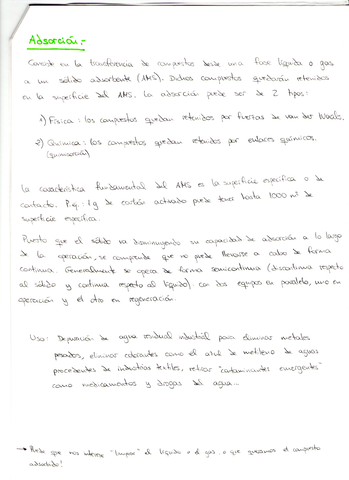 Adsorción:-
Consiste en la transferencia de compuestos desde una fase líquida o gas
a un sólido adsorbente (AMS). Dichos compuestos quedarán retenidos
en la superficie del AMS. La adsorción puede ser de 2 tipos:
1) Física: los compuestos quedan retenidos por fuerzas de van der Waals.
2) Química: los compuestos quedan retenidos por enlaces químicos.
(quimisorción)
La característica fundamental del AMS es la superficie específica o de
contacto. P.ej.: 1g de carbón activado puede tener hasta 1000 m² de
superficie específica.
Puesto que el sólido va disminuyendo su capacidad de adsorción a lo largo
de la operación, se comprende que no puede llevarse a cabo de forma
continua. Generalmente se opera de forma semicontinua (discontinua respecto
al sólido y continua respecto al líquido): con dos equipos en paralelo, uno en
operación y el otro en regeneración.
Uso: Depuración de agua residual industrial para eliminar metales
pesados, eliminar colorantes como el azul de metileno de aguas
procedentes de industrias textiles, retirar "contaminantes emergentes"
como medicamentos y drogas del agua...
→ Puede que nos interese "limpiar" el líquido o el gas, o que queramos el compuesto
adsorbido!